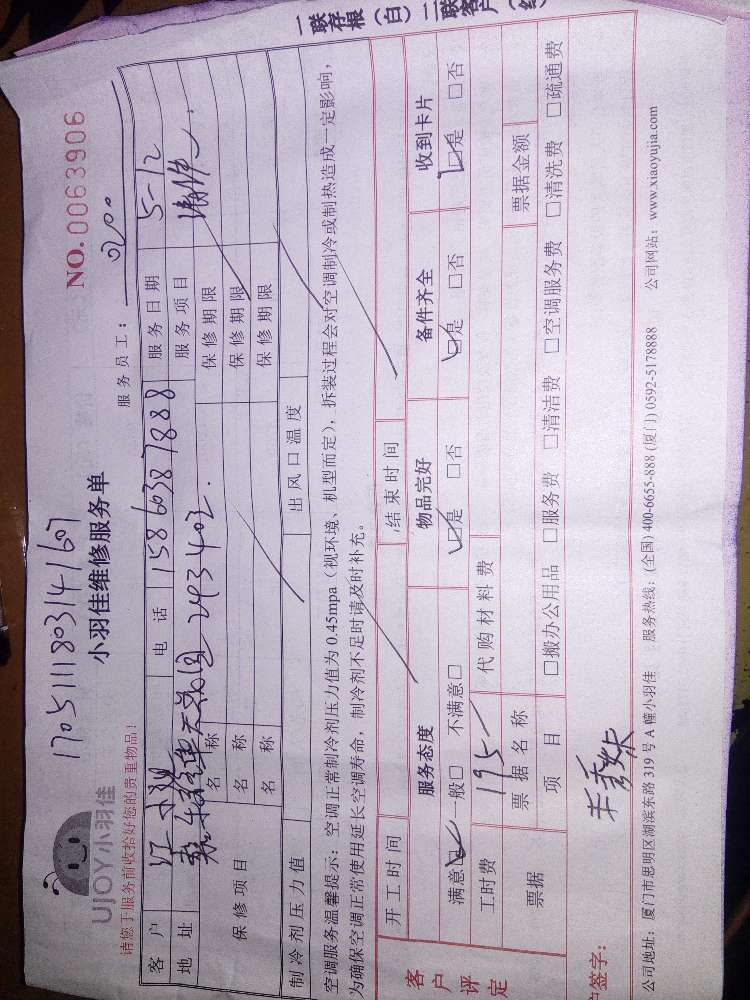 一联存根(白)二联客户(红
170511180314160
NO.0063906
UJOY小羽佳
小羽佳维修服务单
请您于服务前收拾好您的贵重物品!
服务员工:
客户 江小姐 电话 15860387888 服务日期 5-12
地址 服务项目
保修项目 名称 保修期限
名称 保修期限
名称 保修期限
制冷剂压力值 出风口温度
空调服务温馨提示:空调正常制冷剂压力值为 0.45mpa(视环境、机型而定),拆装过程会对空调制冷或制热造成一定影响,
为确保空调正常使用延长空调寿命,制冷剂不足时请及时补充。
开工时间 结束时间
客户评定 服务态度 物品完好 备件齐全 收到卡片
满意□ 一般□ 不满意□ □是 □否 □是 □否 □是 □否
工时费 195 代购材料费
票据 票据名称 票据金额
项目 □搬办公用品 □服务费 □清洁费 □空调服务费 □清洗费 □疏通费
签字:
公司地址:厦门市思明区湖滨东路 319 号 A 幢小羽佳 服务热线:(全国) 400-6655-888 (厦门) 0592-5178888 公司网站:www.xiaoyujia.com